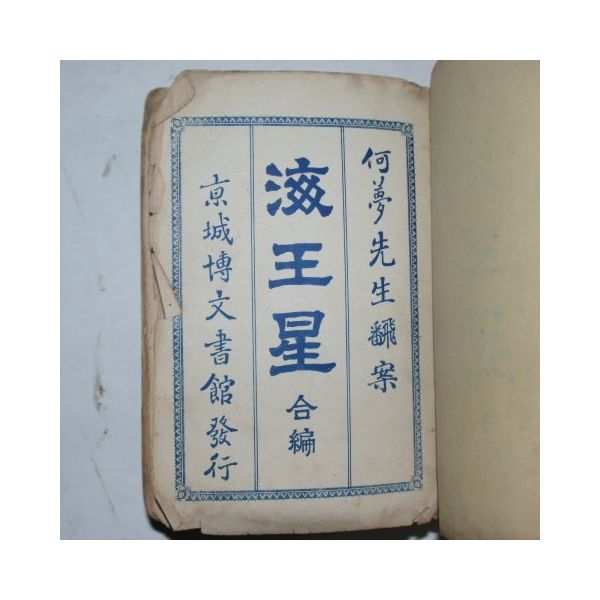 何夢先生飜案
海王星
合編
京城博文書館發行